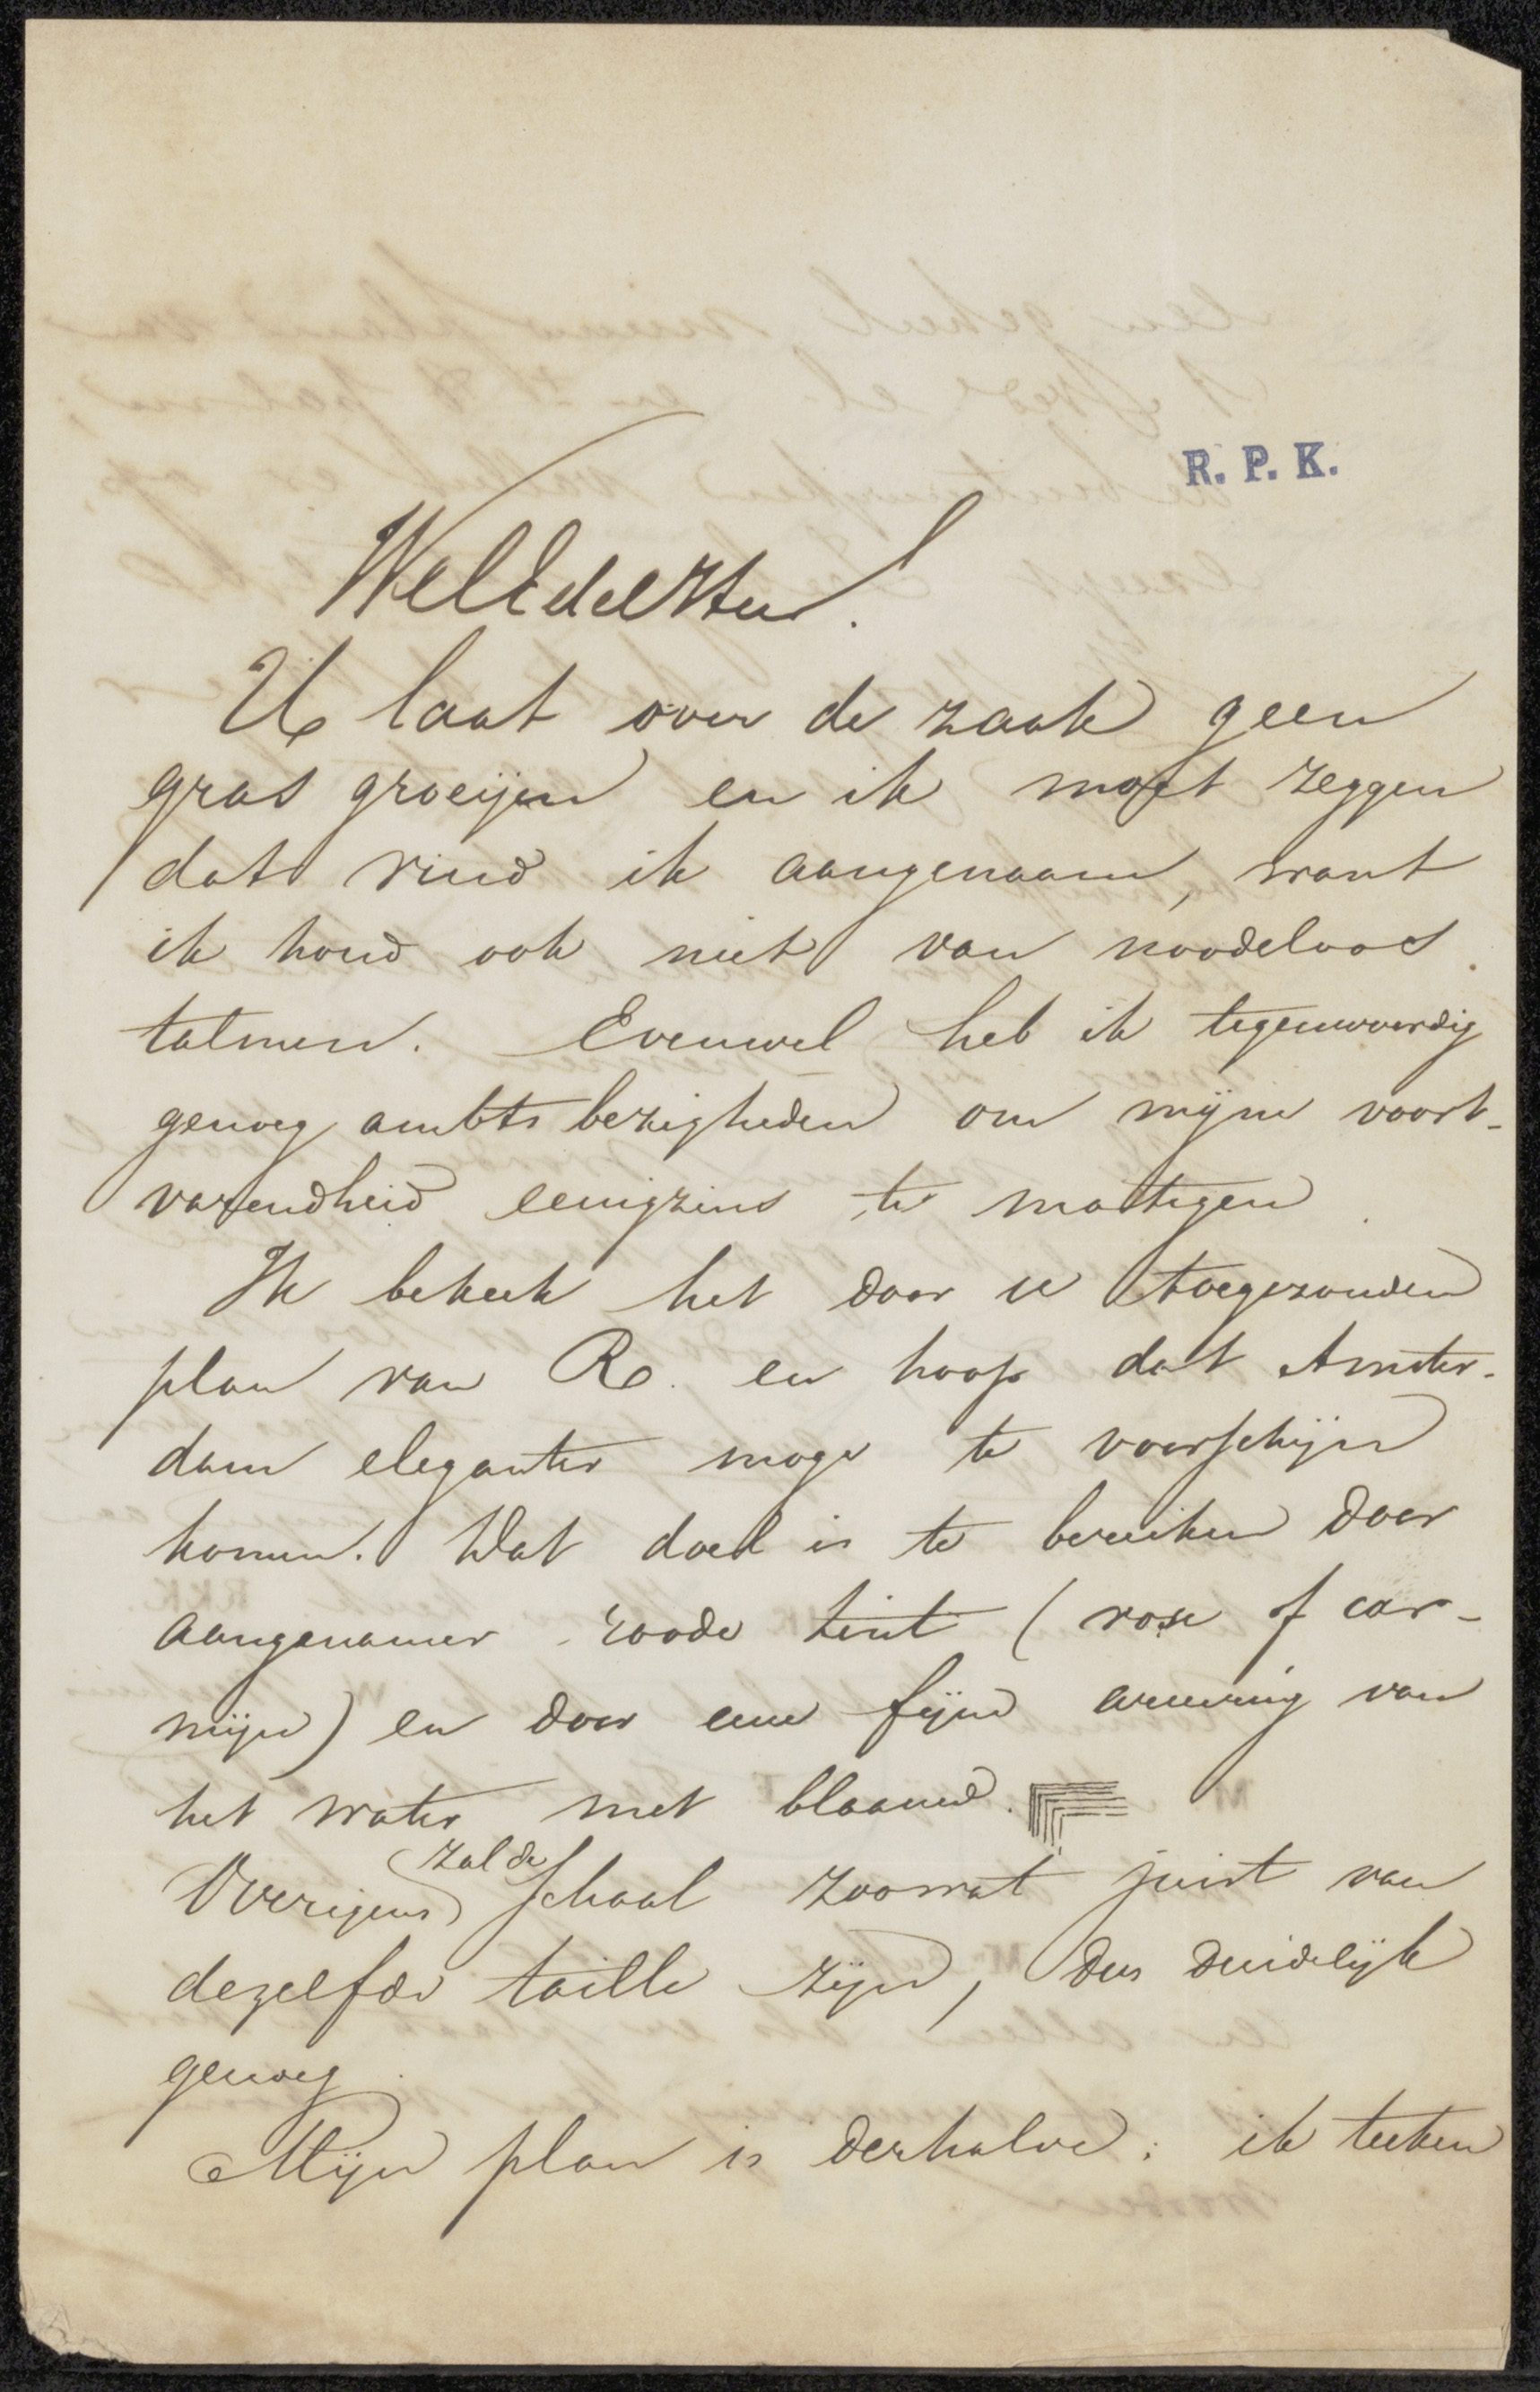 R. P. K.
WelEdele Heer!
U laat over de zaak geen
gras groeijen en ik moet zeggen
dat vind ik aangenaam, want
ik houd ook niet van noodeloos
talmen. Evenwel heb ik tegenwoordig
genoeg ambtsbezigheden om mijne voort-
varendheid eenigzins te matigen.
Ik bekeek het door u toegezonden
plan van R. en hoop dat Amster-
dam eleganter moge te voorschijn
komen. Dat doel is te bereiken door
aangenamer roode tint (rose of car-
mijn) en door eene fijne arcering van
het water met blaauw.
Overigens zal de schaal zoowat juist van
dezelfde taille zijn, dus duidelijk
genoeg.
Mijn plan is derhalve: ik teeken